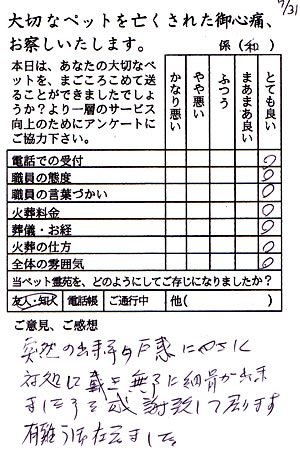 9/31
大切なペットを亡くされた御心痛、
お察しいたします。 係(和)
本日は、あなたの大切なペットを、まごころこめて送ることができましたでしょうか?より一層のサービス向上のためにアンケートにご協力下さい。
かなり悪い やや悪い ふつう まあまあ良い とても良い
電話での受付 ○
職員の態度 ○
職員の言葉づかい ○
火葬料金 ○
葬儀・お経 ○
火葬の仕方 ○
全体の雰囲気 ○
当ペット霊苑を、どのようにしてご存じになりましたか?
友人・知人 電話帳 ご通行中 他( )
ご意見、ご感想
突然の出来事で戸惑にやさしく
対処して戴き無事に納骨が出来
ました事を感謝致して居ります
有難うございました